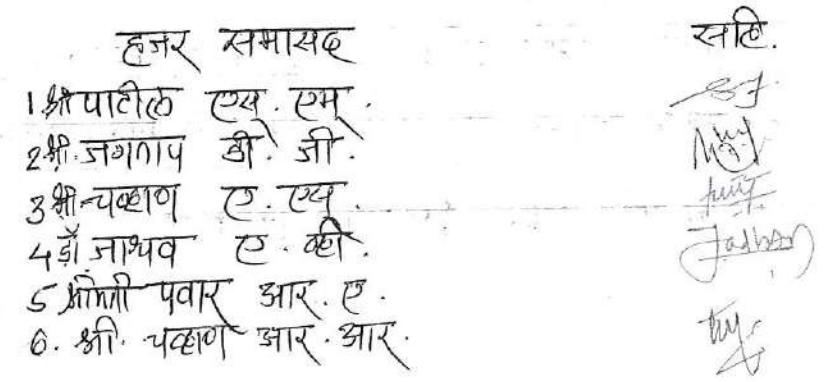 हजर सभासद सहि.
1 श्री पाटील एस. एम.
2 श्री. जगताप डी. जी.
3 श्री चव्हाण ए. एस.
4 डॉ जाधव ए. व्ही. Jadhav
5 श्रीमती पवार आर. ए.
6. श्री. चव्हाण आर. आर.